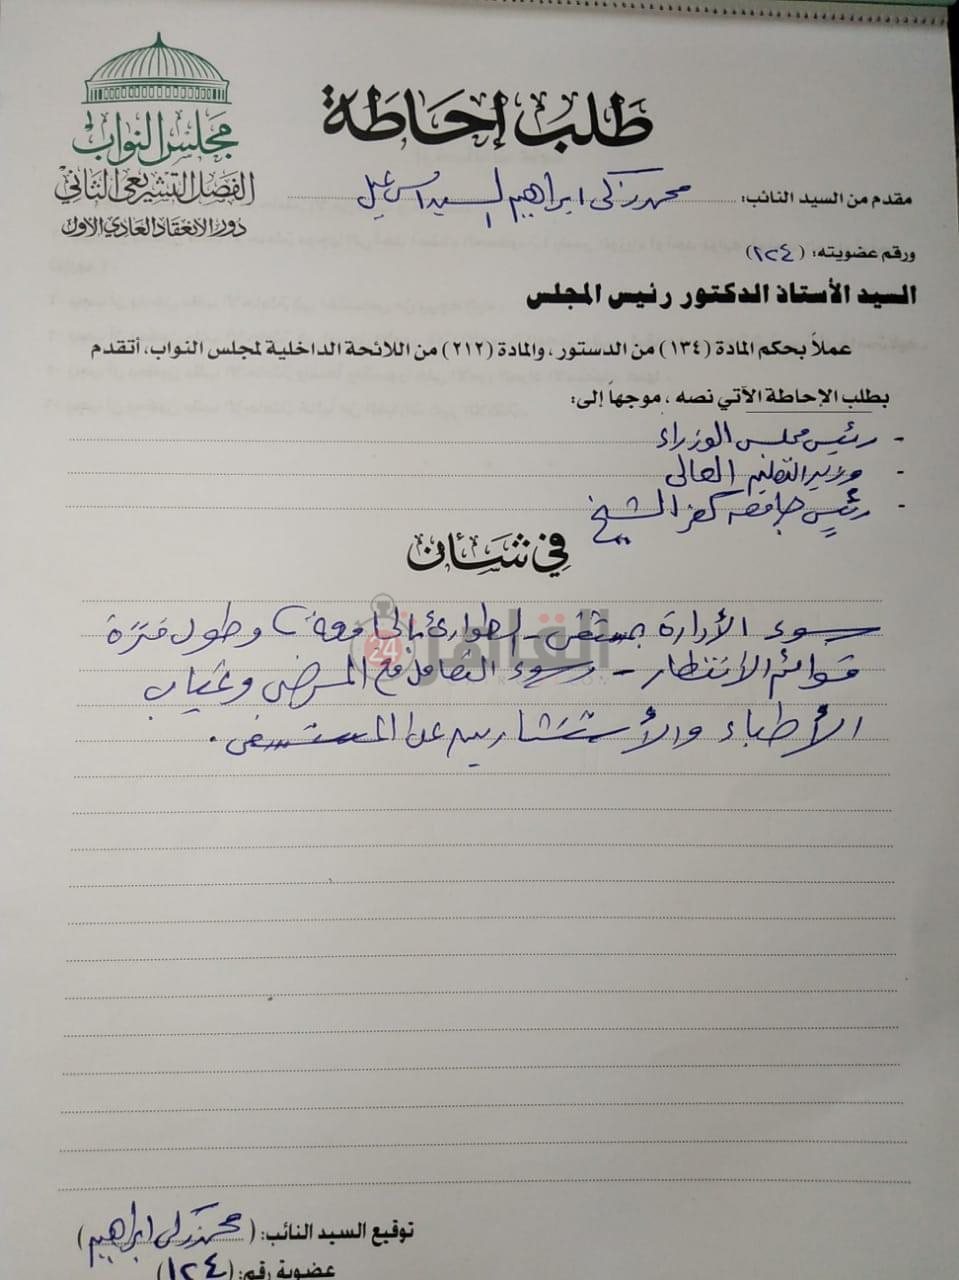 مجلس النواب
الفصل التشريعى الثانى
دور الانعقاد العادى الاول
طلب إحاطة
مقدم من السيد النائب: محمد زكى ابراهيم السيد اسماعيل
ورقم عضويته: (١٢٤)
السيد الأستاذ الدكتور رئيس المجلس
عملاً بحكم المادة (١٣٤) من الدستور، والمادة (٢١٢) من اللائحة الداخلية لمجلس النواب، أتقدم
بطلب الإحاطة الآتي نصه، موجهاً إلى:
- رئيس مجلس الوزراء
- وزير التعليم العالى
- رئيس جامعه كفر الشيخ
في شأن
سوء الأدارة بمستشفى الطوارئ بالجامعة وطول فترة
قوائم الأنتظار - وسوء التعامل مع المرضى وغياب
الأطباء والأستشاريين عن المستشفى.
القاهرة 24
توقيع السيد النائب: (محمد زكى ابراهيم)
عضوية رقم: (١٢٤)